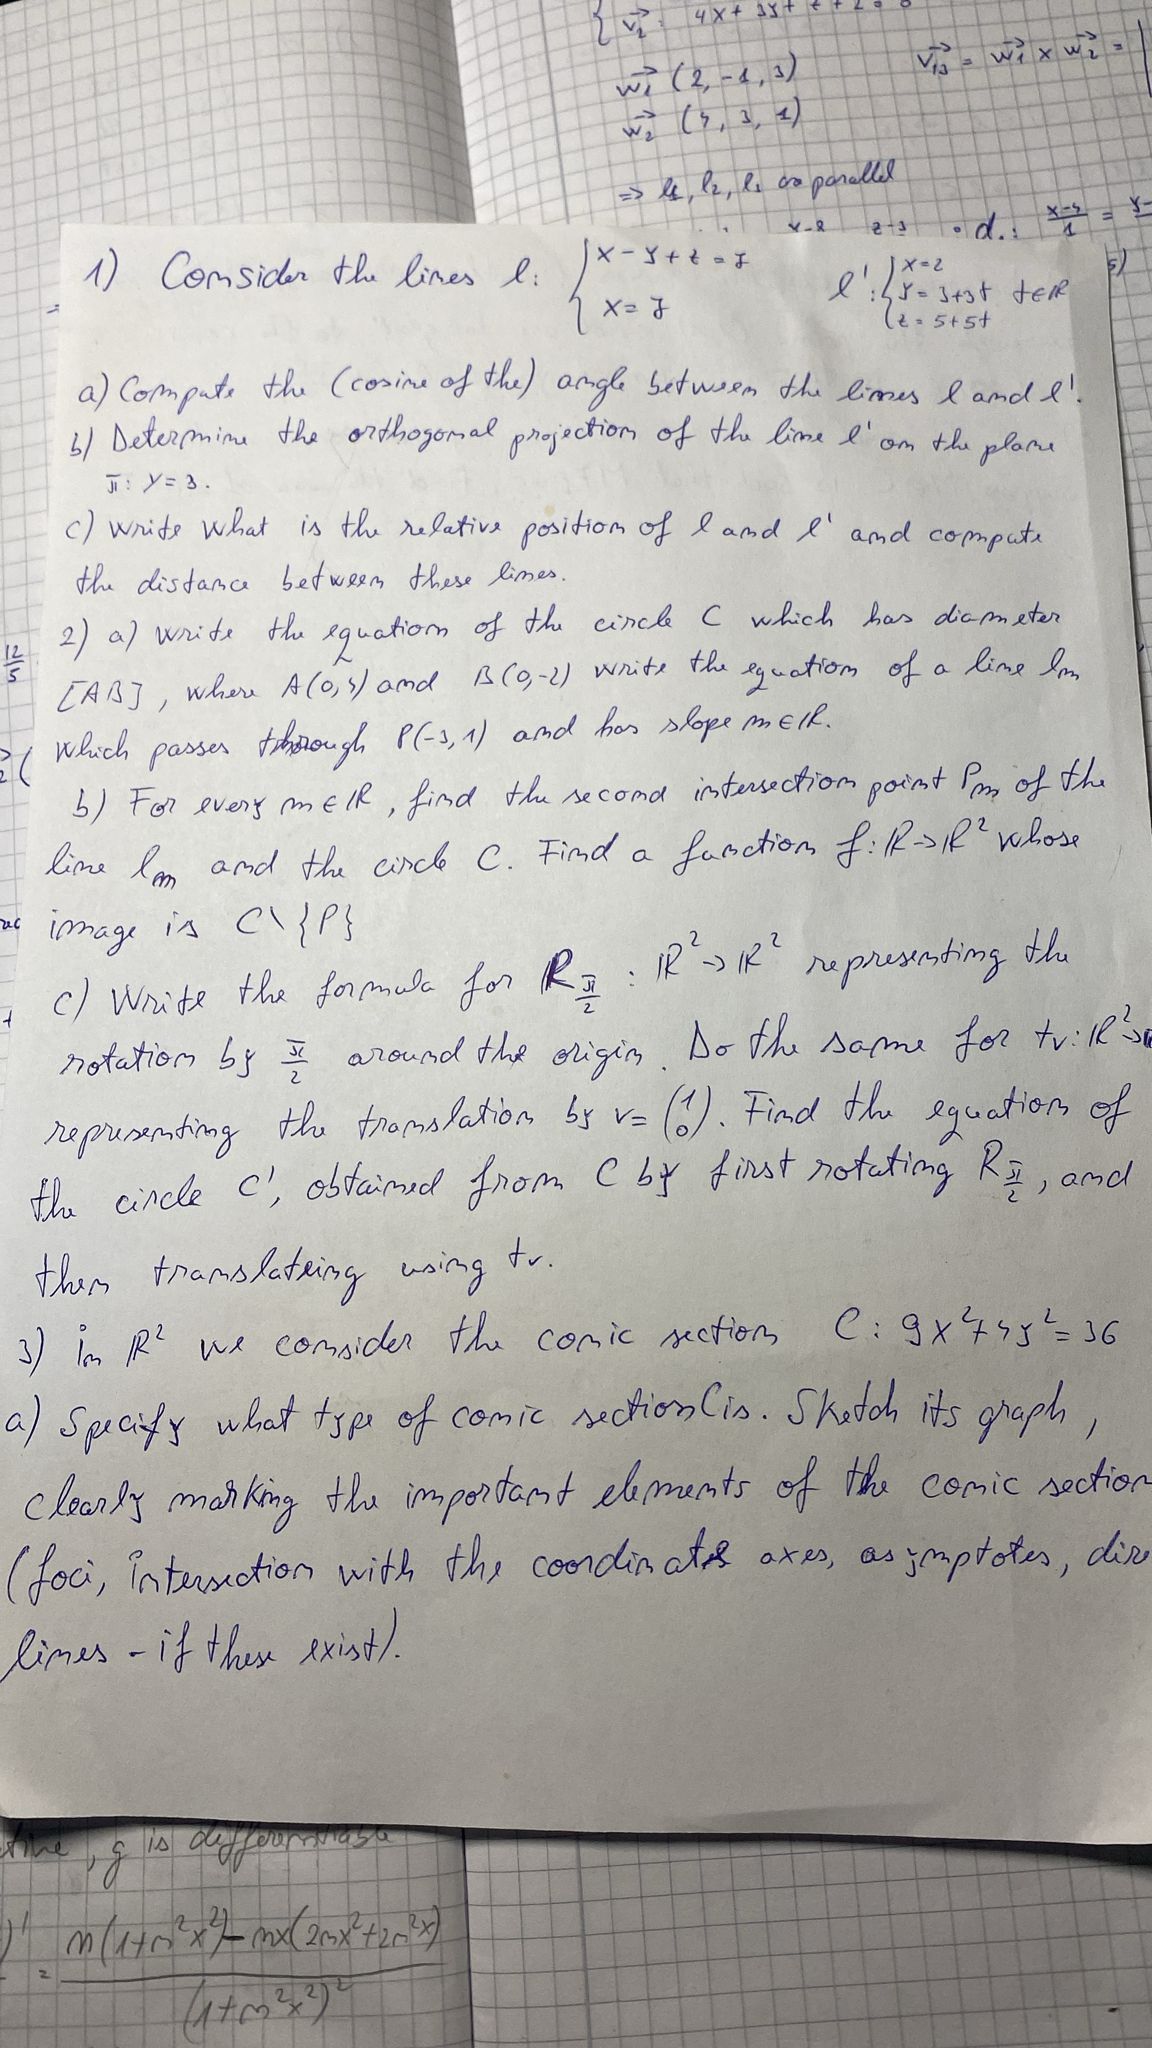 v2: 4x + 3y + z + 2 = 0
w1 (2, -1, 3)
v13 = w1 x w2 =
w2 (4, 3, 1)
=> l1, l2, l3 are parallel
d.: x-4/1 =
1) Consider the lines l: { x - y + z = 7
x = 7
l': { x = 2
y = 3+3t t∈ℝ
z = 5+5t
a) Compute the (cosine of the) angle between the lines l and l'.
b) Determine the orthogonal projection of the line l' on the plane
π: y = 3.
c) Write what is the relative position of l and l' and compute
the distance between these lines.
2) a) Write the equation of the circle C which has diameter
[AB], where A(0,4) and B(0,-2) write the equation of a line lm
which passes through P(-3,1) and has slope m∈ℝ.
b) For every m∈ℝ, find the second intersection point Pm of the
line lm and the circle C. Find a function f: ℝ→ℝ² whose
image is C\{P}
c) Write the formula for R π/2 : ℝ²→ℝ² representing the
rotation by π/2 around the origin. Do the same for tv: ℝ²→
representing the translation by v = (1 0). Find the equation of
the circle C', obtained from C by first rotating R π/2, and
then translateing using tv.
3) In ℝ² we consider the conic section C: 9x²+4y² = 36
a) Specify what type of conic section C is. Sketch its graph,
clearly marking the important elements of the conic section
(foci, intersection with the coordinates axes, asymptotes, dire
lines - if these exist).
, g is differentiable
)' = n(1+n²x²) - nx(2nx²+2n²x) / (1+n²x²)²
12/5